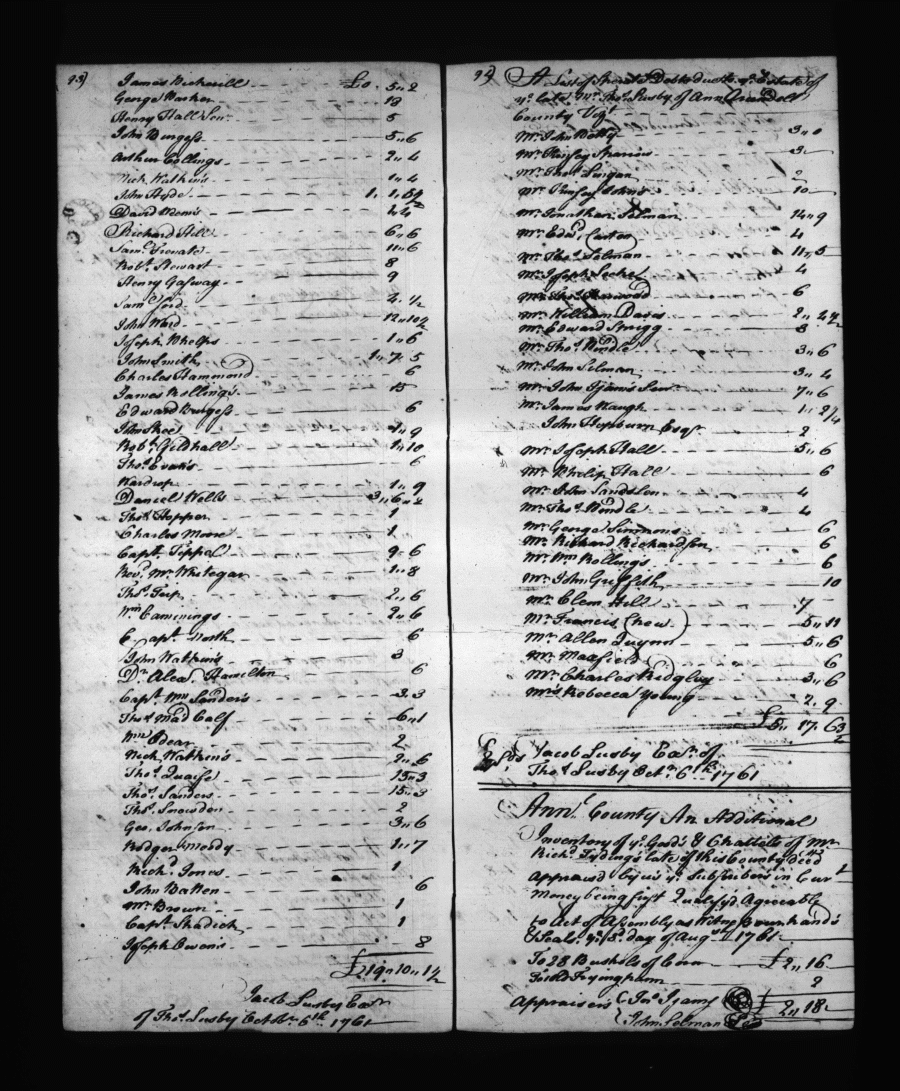 93)
James Bickerill - - - £0. 5 " 2
George Barber - - - 13
Henry Hall Senr. - - - 5
John Burgess - - - 5 " 6
Arthur Collings - - - 2 " 4
Nick Watkins - - - 1 " 4
John Hyde - - - 1. 1. 5½
David Weems - - -
Richard Hill - - - 6 " 6
Saml. - - - 11 " 6
Robt. Stewart - - - 8
Henry Gasway - - - 9
Saml. Ford - - - 2. ½
John Ward - - - 12 " 10½
Joseph Phelps - - - 1 " 6
John Smith - - - 1 " 7 " 5
Charles Hammond - - - 6
James Rollings - - - 15
Edward Burgess - - - 6
John - - - 1 " 9
Robt. Gildhall - - - 1 " 10
Thos. Evans - - - 6
Wardrop - - - 1 " 9
Daniel Wells - - - 3 " 6 " 2
Thos. Hopper - - - 1
Charles Moore - - - 1
Capt. Tippel - - - 9 " 6
Revd. Mr. Whitegar - - - 1 " 8
Thos. - - - 2 " 6
Wm. Cammings - - - 2 " 6
Capt. North - - - 6
John Watkins - - - 3
Dr. Alexr. Hamelton - - - 6
Capt. Wm Sanders - - - 3. 3
Thos. Mad Calf - - - 6 " 1
Wm - - - 2
Nick Watkins - - - 2 " 6
Thos. Quaife - - - 13 " 3
Thos. Sanders - - - 15 " 3
Thos. Snowden - - - 2
Geo. Johnson - - - 3 " 6
Rodger Moody - - - 1 " 7
Richd. Jones - - - 1
John Batten - - - 6
Mr. Brown - - - 1
Capt. Shadick - - - 1
Joseph Owens - - - 8
£19 " 10 " 1½
Jacob Lusby Exr
of Thos. Lusby Octobr. 6th. 1761
94) A List of Sperate Debts due to ye. Estate of
ye. late Mr. Thos. Lusby of Ann Arundell
County Vizt
Mr. John Batty - - - 3 " 0
Mr. Kinsey Sparrow - - - 3
Mr. - - - 2
Mr. Kinsey Johns - - - 10
Mr. Jonathan Selman - - - 14 " 9
Mr. Edwd. Carter - - - 4
Mr. Thos. Selman - - - 11 " 5
Mr. Joseph - - - 4
Mr. Thos. - - - 6
Mr. William Davis - - - 2 "
Mr. Edward Sprigg - - - 8
Mr. Thos. Windle - - - 3 " 6
Mr. John Selman - - - 3 " 4
Mr. John Ijams Senr. - - - 7 " 6
Mr. James Waugh - - - 1 " 2/4
John Hepburn Esqr. - - - 2
Mr. Joseph Hall - - - 5 " 6
Mr. Philip Hall - - - 6
Mr. John - - - 4
Mr. Thos. Windle - - - 4
Mr. George Simmons - - - 6
Mr. Richard Richardson - - - 6
Mr. Wm Rollings - - - 6
Mr. John Griffith - - - 10
Mr. Clem Hill - - - 7
Mr. Francis Chew - - - 5 " 11
Mr. Allen Quynn - - - 5 " 6
Mr. Maxfield - - - 6
Mr. Charles Ridgley - - - 3 " 6
Mrs. Rebecca Young - - - 2. 9
£5 " 17. 6 3/2
Jacob Lusby Exr. of
Thos. Lusby Octr. 6th. 1761
Annl. County An Additional
Inventory of ye. Goods & Chattels of Mr
Richd. Tydings late of this County decd.
Appraisd by us ye. Subscribers in Curt
Money being first Qualifyd Agreeable
to Act of Assembly as Witness our hands
& Seals ye. 8. day of Augt. 1761
To 28 Bushels of Corn - - - £2 " 16
To Old Fryingpann - - - 2
Appraisers { Jno. Ijams £ 2 " 18
{ John Selman